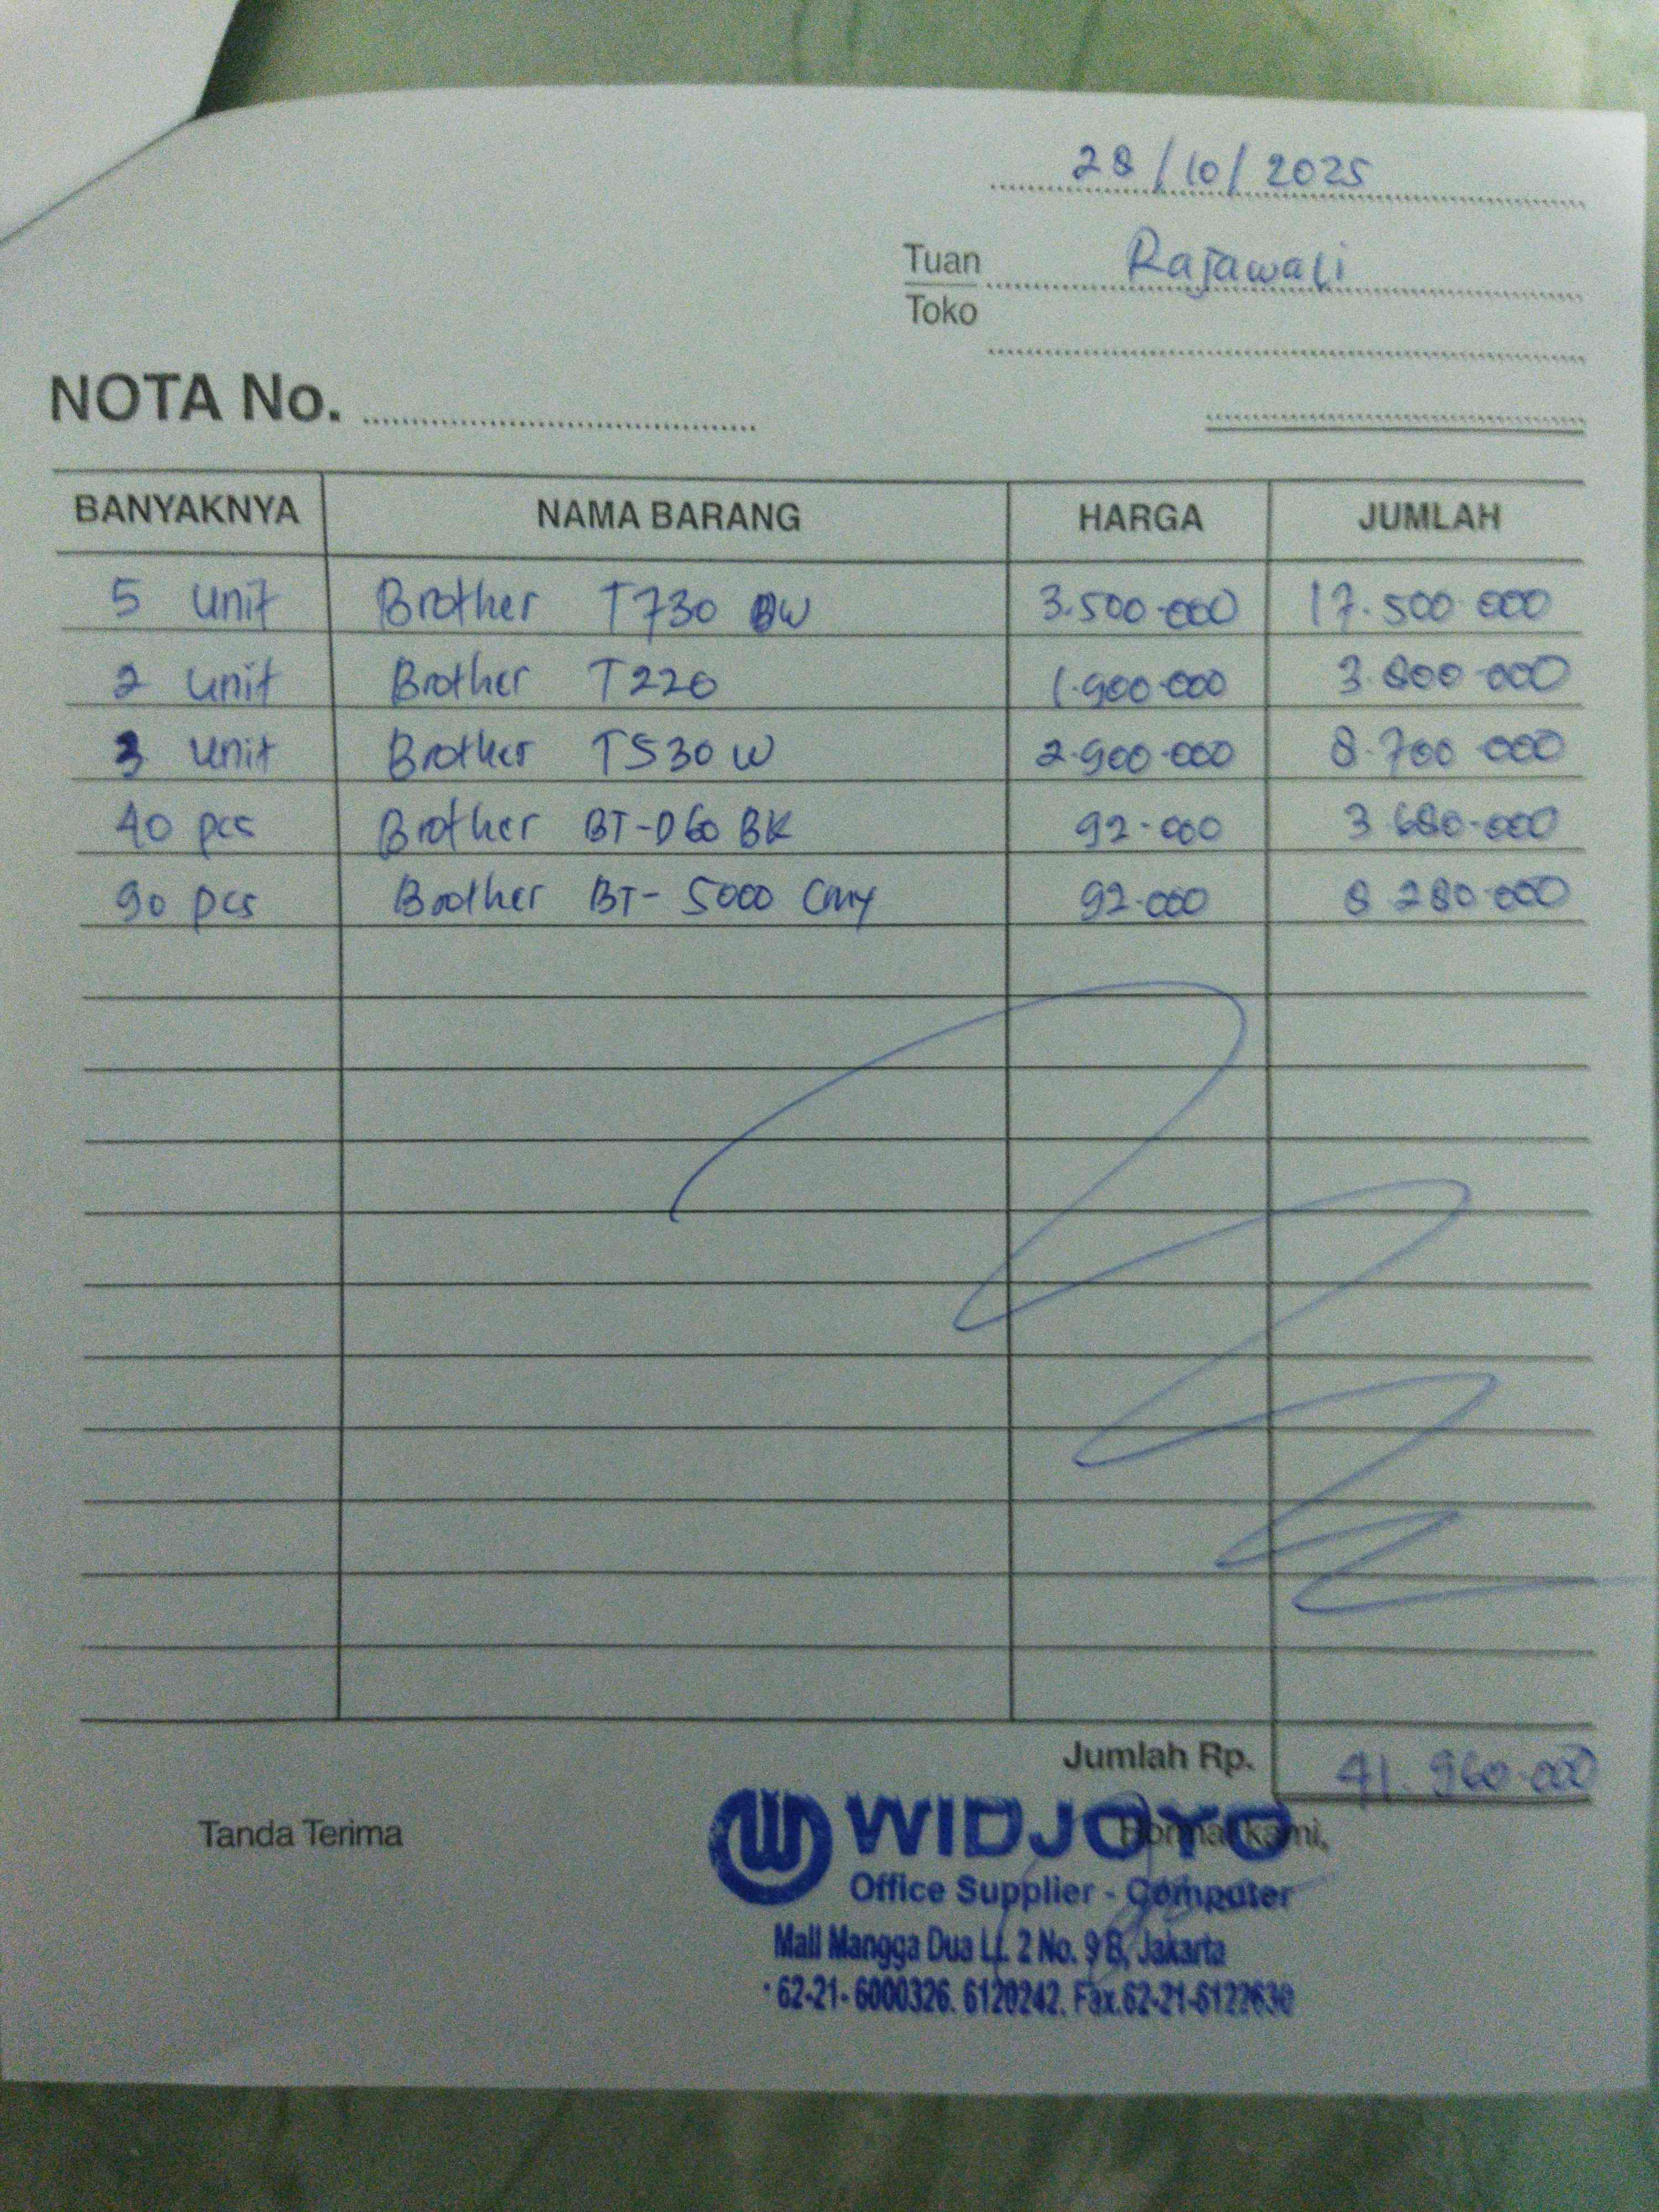 28/10/2025
Tuan Rajawali
Toko
NOTA No.
BANYAKNYA NAMA BARANG HARGA JUMLAH
5 unit Brother T730 DW 3.500.000 17.500.000
2 unit Brother T220 1.900.000 3.800.000
3 unit Brother T530 W 2.900.000 8.700.000
40 pcs Brother BT-D60 BK 92.000 3.680.000
90 pcs Brother BT-5000 CMY 92.000 8.280.000
Jumlah Rp. 41.960.000
Tanda Terima Hormat kami,
WIDJOYO
Office Supplier - Computer
Mall Mangga Dua Lt. 2 No. 9 B, Jakarta
62-21-6000326. 6120242. Fax.62-21-6122630